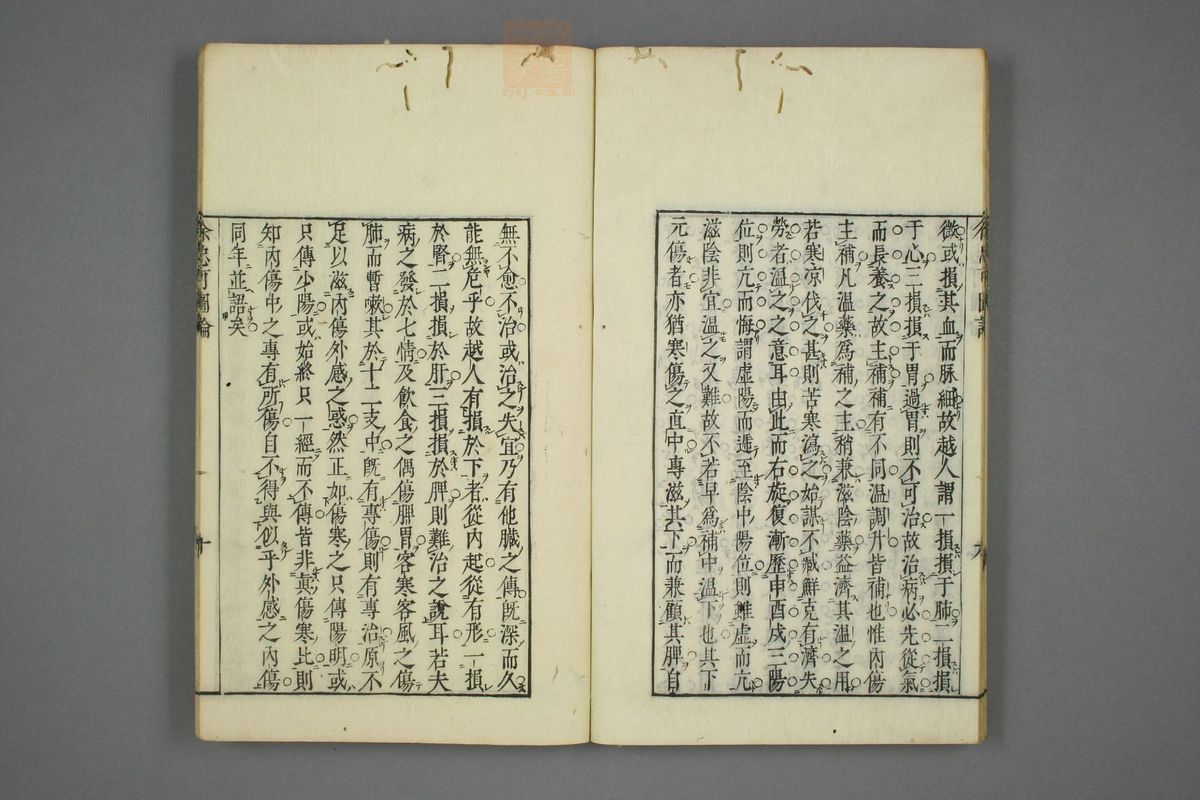 微或損其血而脉細故越人謂一損損于肺二損損
于心三損損于胃過胃則不可治故治病必先從氣
而長養之故主補補有不同温調升皆補也惟內傷
主補凡温藥爲補之主稍兼滋陰藥益濟其温之用
若寒凉伐之甚則苦寒瀉之始謀不臧鮮克有濟矢
勞者温之之意耳由此而右旋復漸歷申酉戌三陽
位則亢亢而悔謂虛陽而遁至陰中陽位則雖虛而亢
滋陰非宜温之又難故不若早爲補中温下也其下
元傷者亦猶寒傷之直中專滋其下而兼顧其脾自
無不愈不治或治之失宜乃有他臟之傳旣深而久
能無危乎故越人有損於下者從內起從有形一損
於腎二損損於肝三損損於脾則難治之說耳若夫
病之發於七情及飲食之偶傷脾胃客寒客風之傷
肺而暫嗽其於十二支中旣有專傷則有專治原不
足以滋內傷外感之惑然正如傷寒之只傳陽明或
只傳少陽或始終只一經而不傳皆非眞傷寒比則
知內傷中之專有所傷自不得與似乎外感之內傷
同年並語矣
十
zysj.com.cn